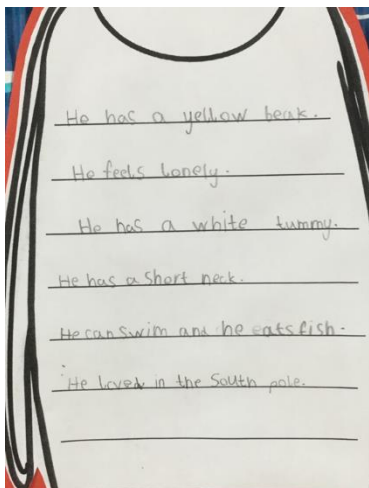 He has a yellow beak.
He feels Lonely.
He has a white tummy.
He has a short neck.
He can swim and he eats fish.
He lived in the South pole.